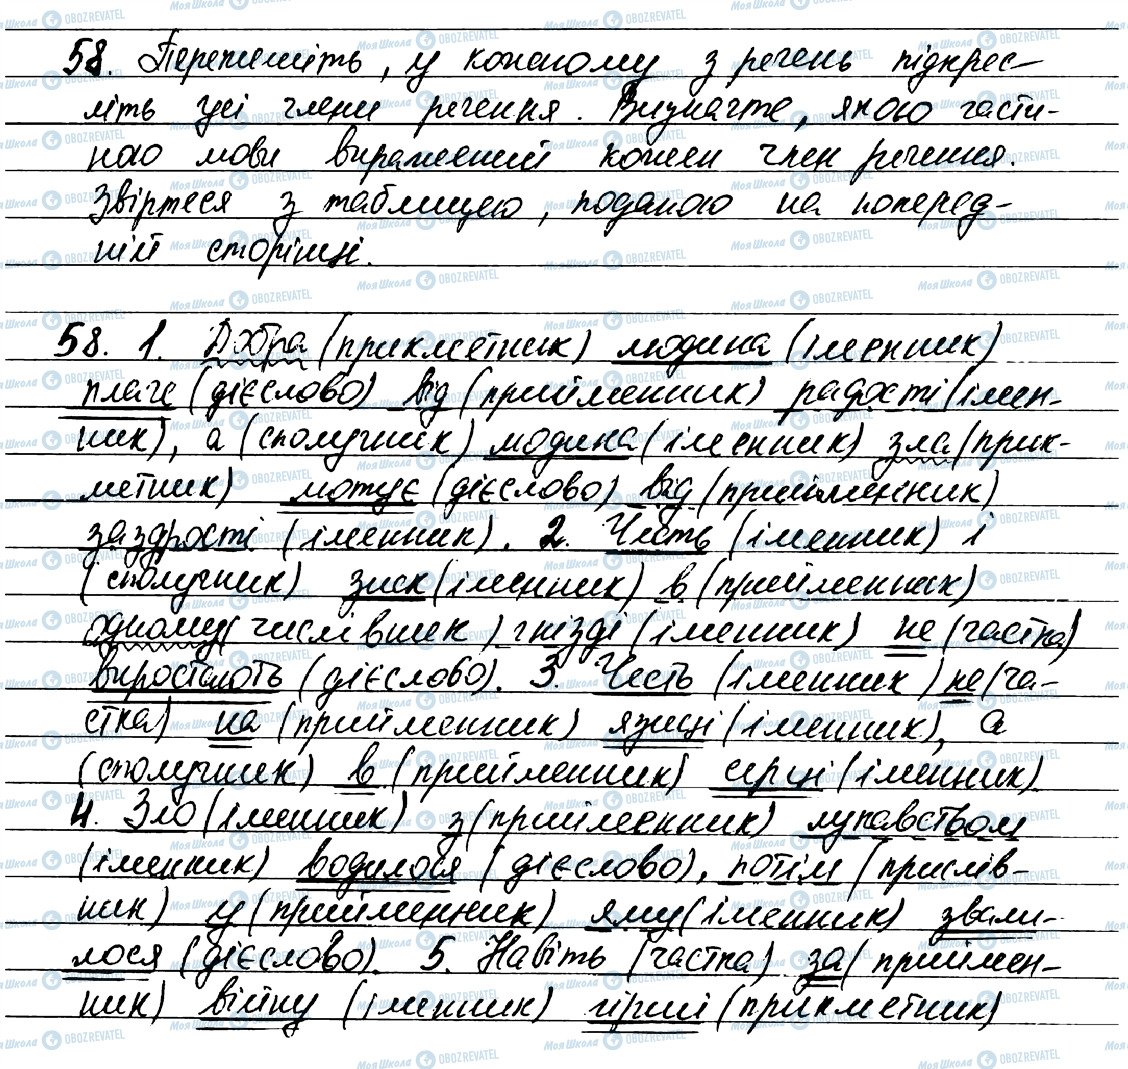 58. Перепишіть, у кожному з речень підкрес-
літь усі члени речення. Визначте, якою части-
ною мови виражений кожен член речення.
Звіртеся з таблицею, поданою на поперед-
ній сторінці.
58. 1. Добра (прикметник) людина (іменник)
плаче (дієслово) від (прийменник) радості (імен-
ник), а (сполучник) людина (іменник) зла (прик-
метник) лютує (дієслово) від (прийменник)
заздрості (іменник). 2. Честь (іменник) і
(сполучник) зиск (іменник) в (прийменник)
одному (числівник) гнізді (іменник) не (частка)
виростають (дієслово). 3. Честь (іменник) не (ча-
стка) на (прийменник) язиці (іменник), а
(сполучник) в (прийменник) серці (іменник).
4. Зло (іменник) з (прийменник) лукавством
(іменник) водилося (дієслово), потім (прислів-
ник) у (прийменник) яму (іменник) звали-
лося (дієслово). 5. Навіть (частка) за (приймен-
ник) війну (іменник) гірші (прикметник)